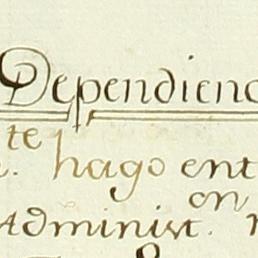 Dependienc
te
. hago ent
on
Administ.